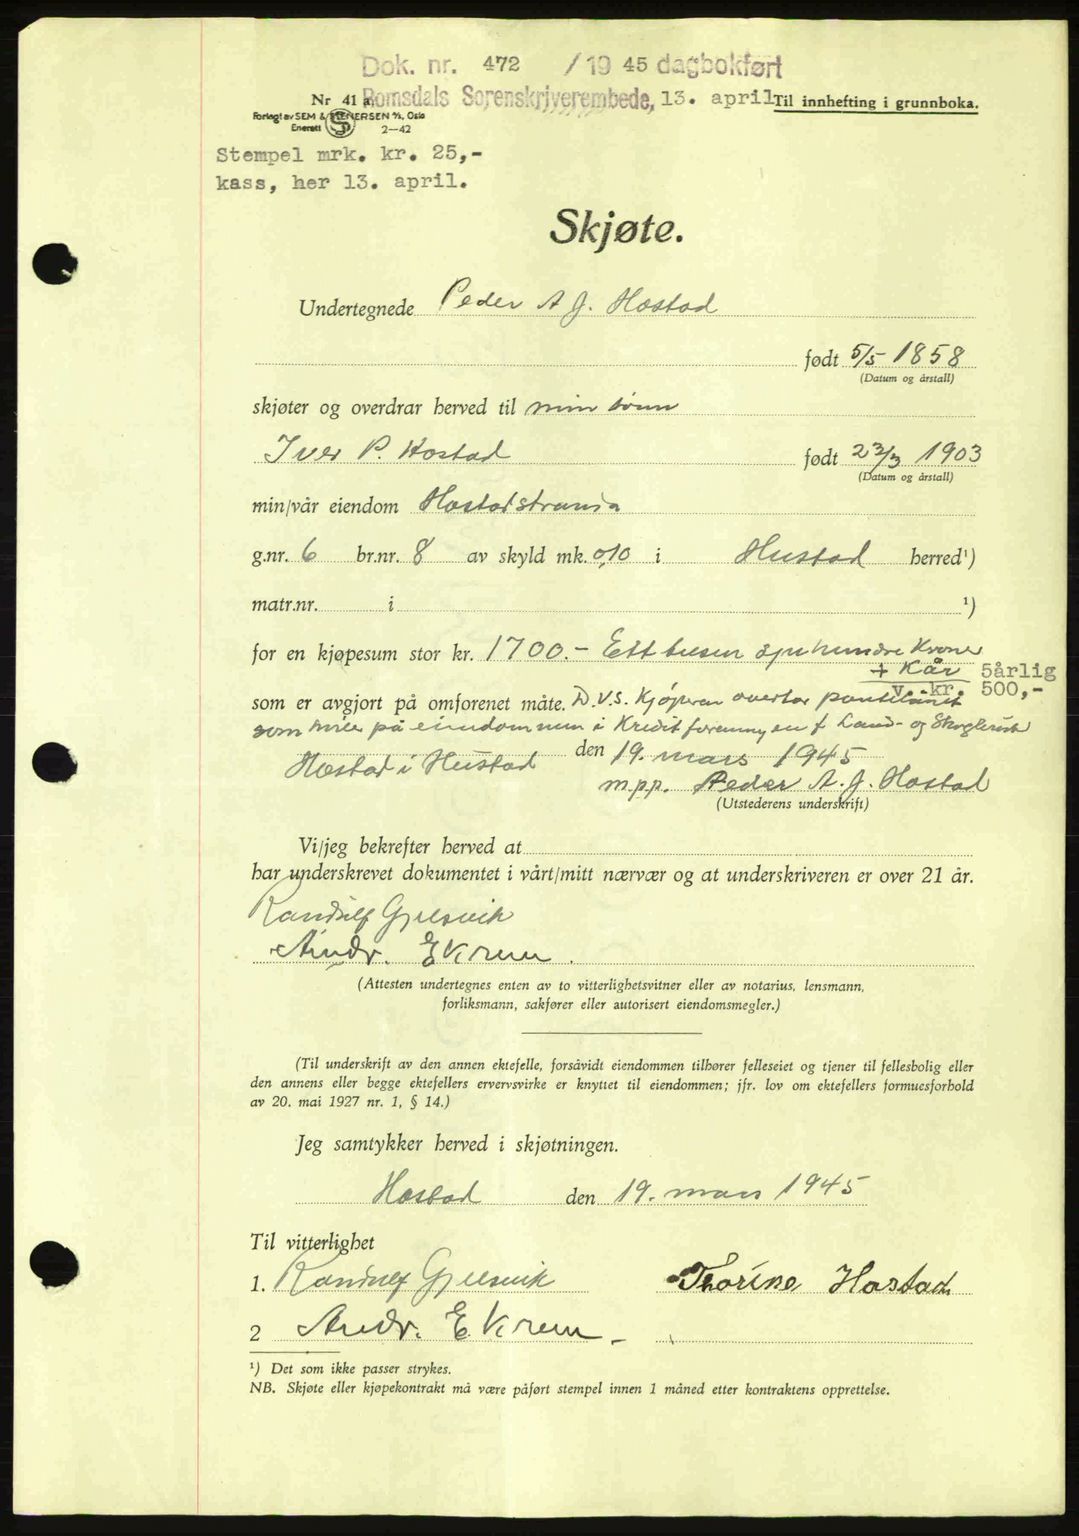 Dok. nr. 472 / 19 45 dagbokført
Nr 41 a. Romsdals Sorenskriverembede, 13. april Til innhefting i grunnboka.
Forlagt av SEM & STENERSEN A/S, Oslo
Enerett 2-42
Stempel mrk. kr. 25,-
kass, her 13. april.
Skjøte.
Undertegnede Peder A J. Hostad
født 5/5 1858
(Datum og årstall)
skjøter og overdrar herved til min sønn
Iver P. Hostad født 23/3 1903
(Datum og årstall)
min/vår eiendom Hostadstranda
g.nr. 6 br.nr. 8 av skyld mk. 0,10 i Hustad herred¹)
matr.nr. i ¹)
for en kjøpesum stor kr. 1700.- Ett tusen syv hundre Kroner
+ Kår 5årlig
v. kr. 500,-
som er avgjort på omforenet måte. D.V.S. Kjøperen overtar pantelånet
som hviler på eiendommen i Kreditforening en f Land- og Skogbruk
Hostad i Hustad den 19. mars 1945
m.p.p. Peder A. J. Hostad
(Utstederens underskrift)
Vi/jeg bekrefter herved at
har underskrevet dokumentet i vårt/mitt nærvær og at underskriveren er over 21 år.
Randulf Gjelsvik
Andr. E Krem.
(Attesten undertegnes enten av to vitterlighetsvitner eller av notarius, lensmann,
forliksmann, sakfører eller autorisert eiendomsmegler.)
(Til underskrift av den annen ektefelle, forsåvidt eiendommen tilhører felleseiet og tjener til fellesbolig eller
den annens eller begge ektefellers ervervsvirke er knyttet til eiendommen; jfr. lov om ektefellers formuesforhold
av 20. mai 1927 nr. 1, § 14.)
Jeg samtykker herved i skjøtningen.
Hostad den 19. mars 1945
Til vitterlighet
1. Randulf Gjelsvik Thorine Hostad
2 Andr. E. Krem
¹) Det som ikke passer strykes.
NB. Skjøte eller kjøpekontrakt må være påført stempel innen 1 måned etter kontraktens opprettelse.